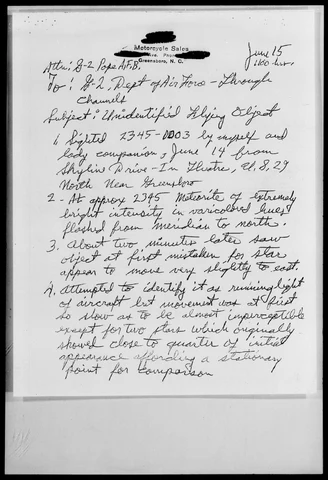 Motorcycle Sales
Greensboro, N. C.
June 15
1100 hrs.
Attn: G-2 Pope A.F.B.
To: G-2; Dept of Air Force - Through
Channels
Subject: Unidentified Flying Object
1. Sighted 2345-0003 by myself and
lady companion, June 14 from
Skyline Drive-In Theatre, U.S. 29
North Near Greensboro
2. - At approx 2345 Meteorite of extremely
bright intensity in varicolored hues
flashed from meridian to north.
3. About two minutes later saw
object at first mistaken for star
appear to move very slightly to east.
4. Attempted to identify it as running light
of aircraft but movement was at first
so slow as to be almost imperceptible
except for two stars which originally
showed close to quarter of initial
appearance affording a stationary
point for comparison